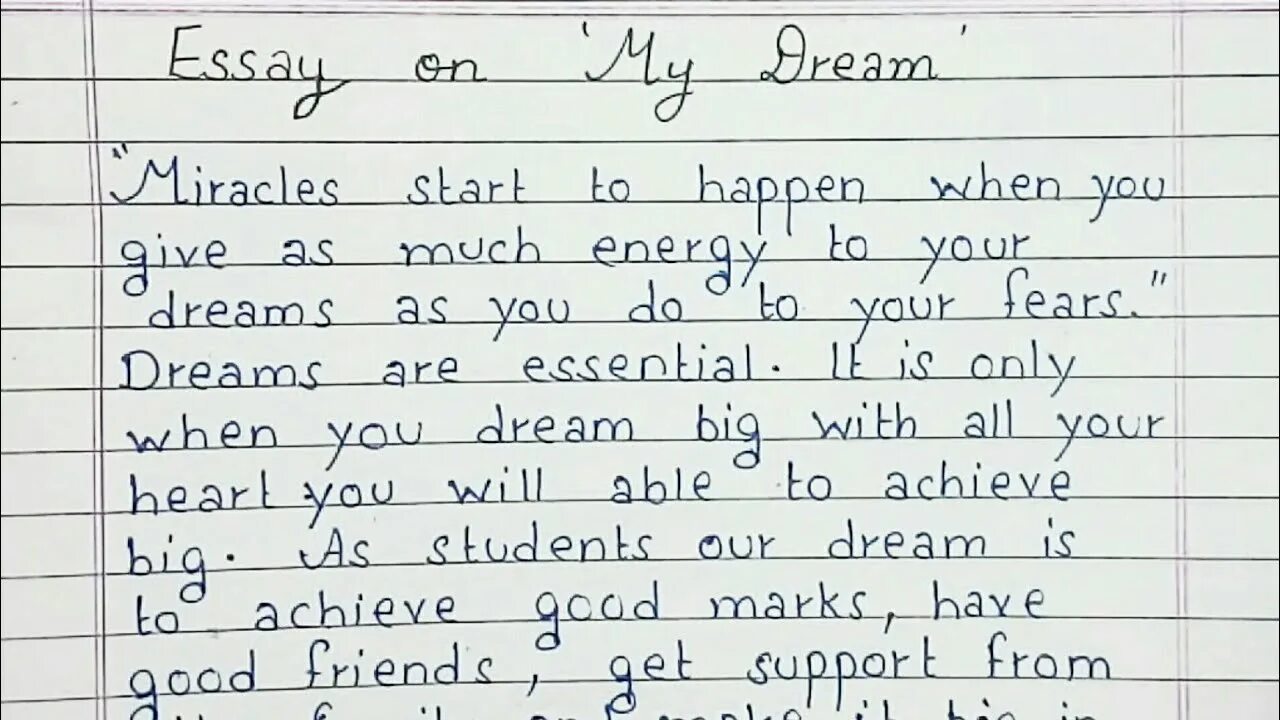 Essay on 'My Dream'
"Miracles start to happen when you
give as much energy to your
dreams as you do to your fears."
Dreams are essential. It is only
when you dream big with all your
heart you will able to achieve
big. As students our dream is
to achieve good marks, have
good friends, get support from